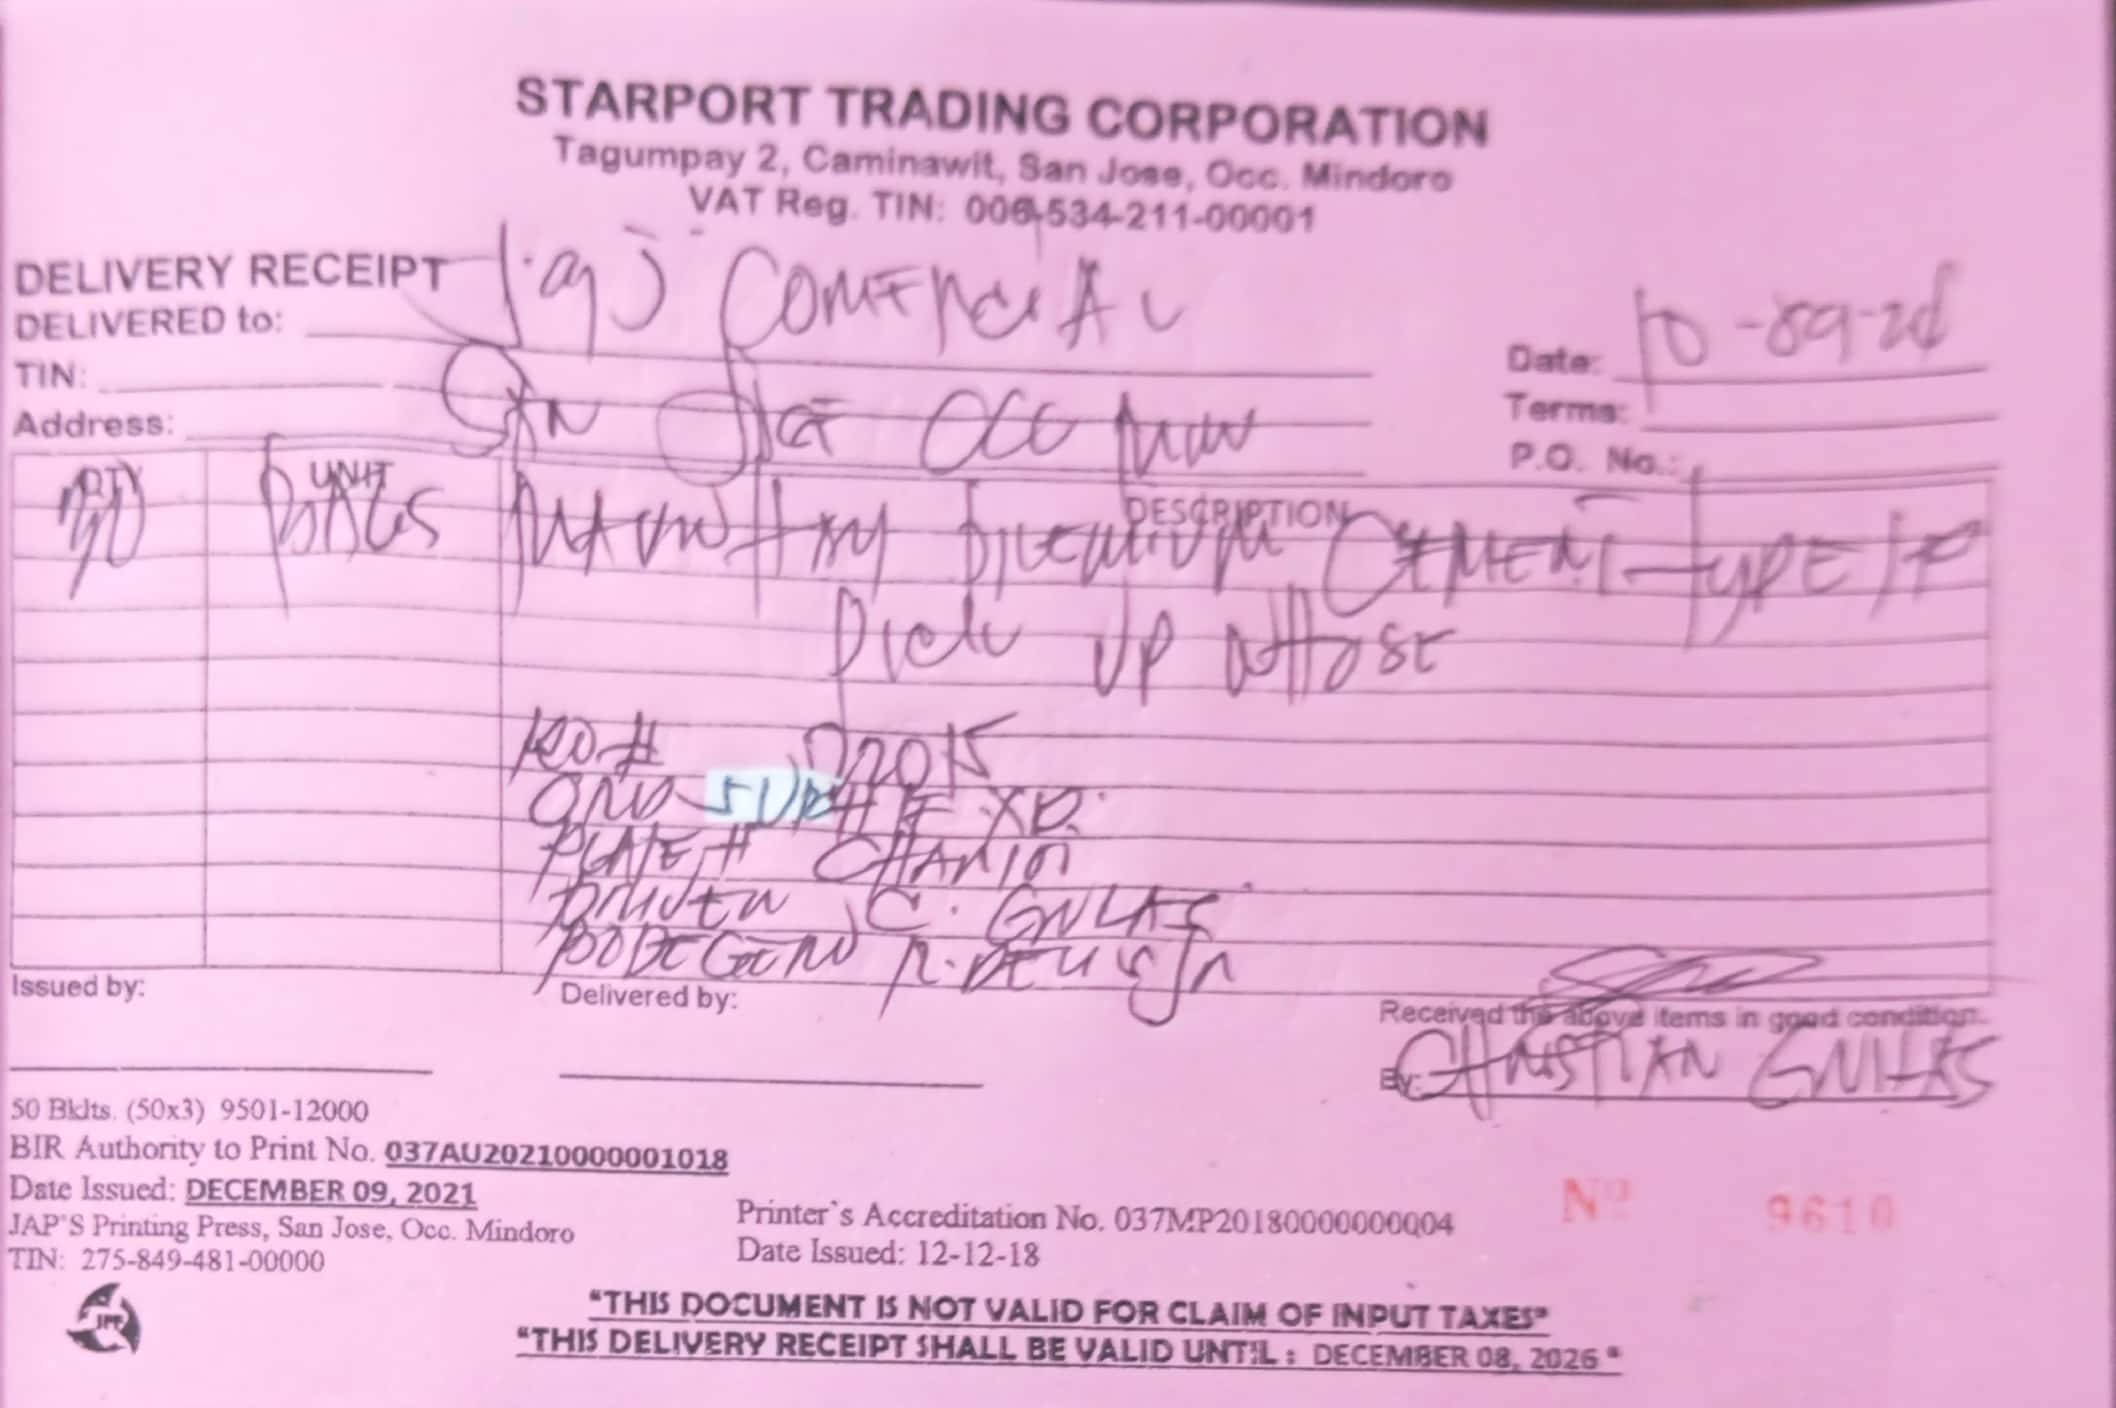 STARPORT TRADING CORPORATION
Tagumpay 2, Caminawit, San Jose, Occ. Mindoro
VAT Reg. TIN: 006-534-211-00001
DELIVERY RECEIPT
DELIVERED to: COMERCIAL
TIN:
Address: SAN JOSE OCC MIN
Date:
Terms:
P.O. No.:
QTY UNIT DESCRIPTION
BAGS PREMIUM CEMENT TYPE 1P
Pick UP WHOSE
RO#
PLATE #
DRIVER C.
BODEGERO
Issued by:
Delivered by:
Received the above items in good condition.
By: CHRISTIAN
50 Bklts. (50x3) 9501-12000
BIR Authority to Print No. 037AU20210000001018
Date Issued: DECEMBER 09, 2021
JAP'S Printing Press, San Jose, Occ. Mindoro
TIN: 275-849-481-00000
Printer's Accreditation No. 037MP20180000000004
Date Issued: 12-12-18
Nº 9610
JPP
"THIS DOCUMENT IS NOT VALID FOR CLAIM OF INPUT TAXES"
"THIS DELIVERY RECEIPT SHALL BE VALID UNTIL : DECEMBER 08, 2026 "